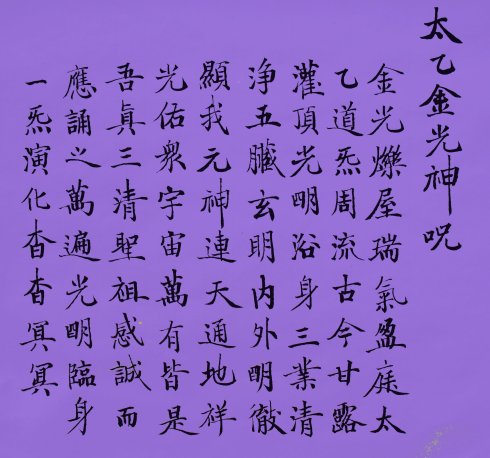 太乙金光神呪
金光爍屋瑞氣盈庭太
乙道炁周流古今甘露
灌頂光明浴身三業清
淨五臟玄明内外明徹
顯我元神連天通地祥
光佑衆宇宙萬有皆是
吾真三清聖祖感誠而
應誦之萬遍光明臨身
一炁演化杳杳冥冥